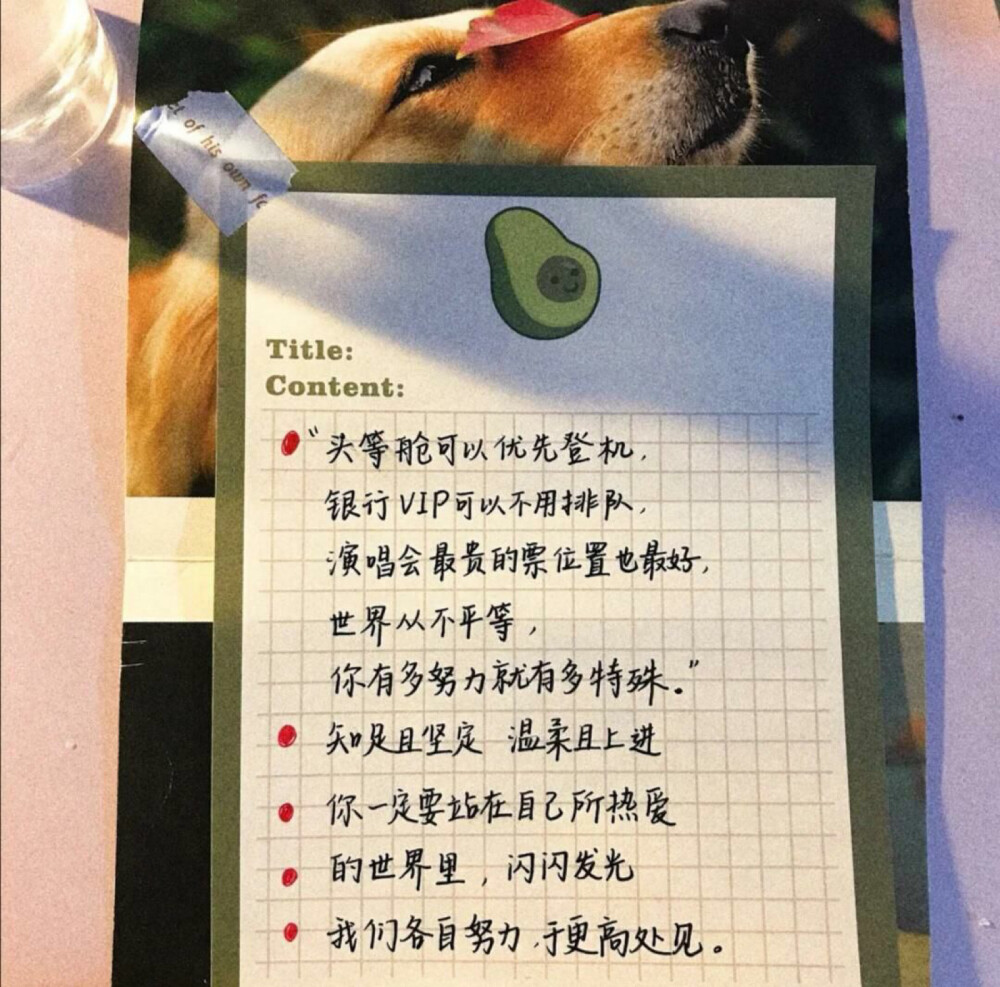 el of his own fo
Title:
Content:
“头等舱可以优先登机,
银行VIP可以不用排队,
演唱会最贵的票位置也最好,
世界从不平等,
你有多努力就有多特殊。”
知足且坚定 温柔且上进
你一定要站在自己所热爱
的世界里,闪闪发光
我们各自努力,于更高处见。